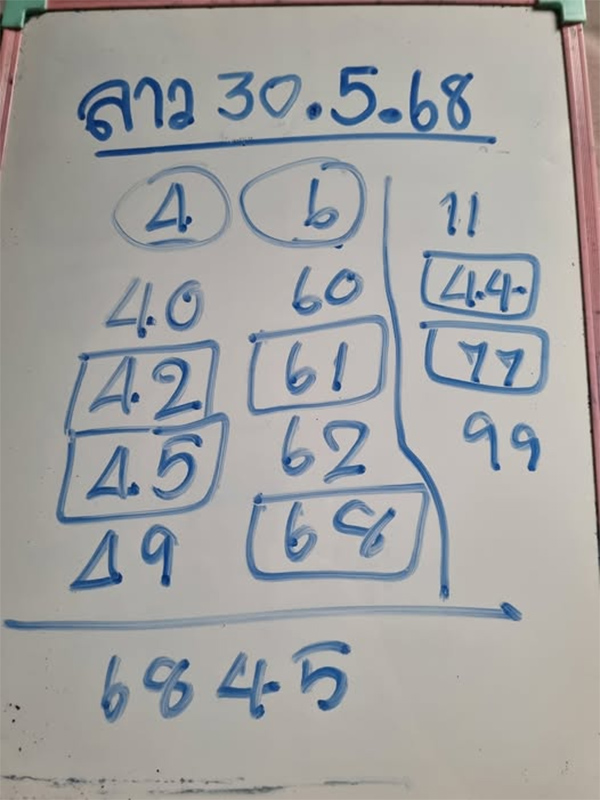 ลาว 30.5.68
4 6 11
40 60 44
42 61 77
45 62 99
49 68
6845